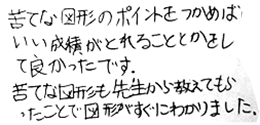 苦てな図形のポイントをつかめば
いい成績がとれることとかをし
て良かったです。
苦てな図形も先生から教えてもら
ったことで図形がすぐにわかりました。